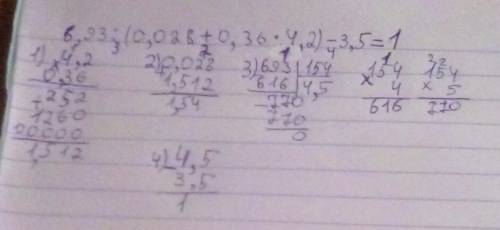 6,93:(0,028+0,36·4,2)-3,5=1
1) ×4,2
0,36
+252
1260
00000
1,512
2) 0,028
1,512
1,54
3) 693 | 154
616 | 4,5
-770
770
0
154
× 4
616
154
× 5
770
4) 4,5
3,5
1